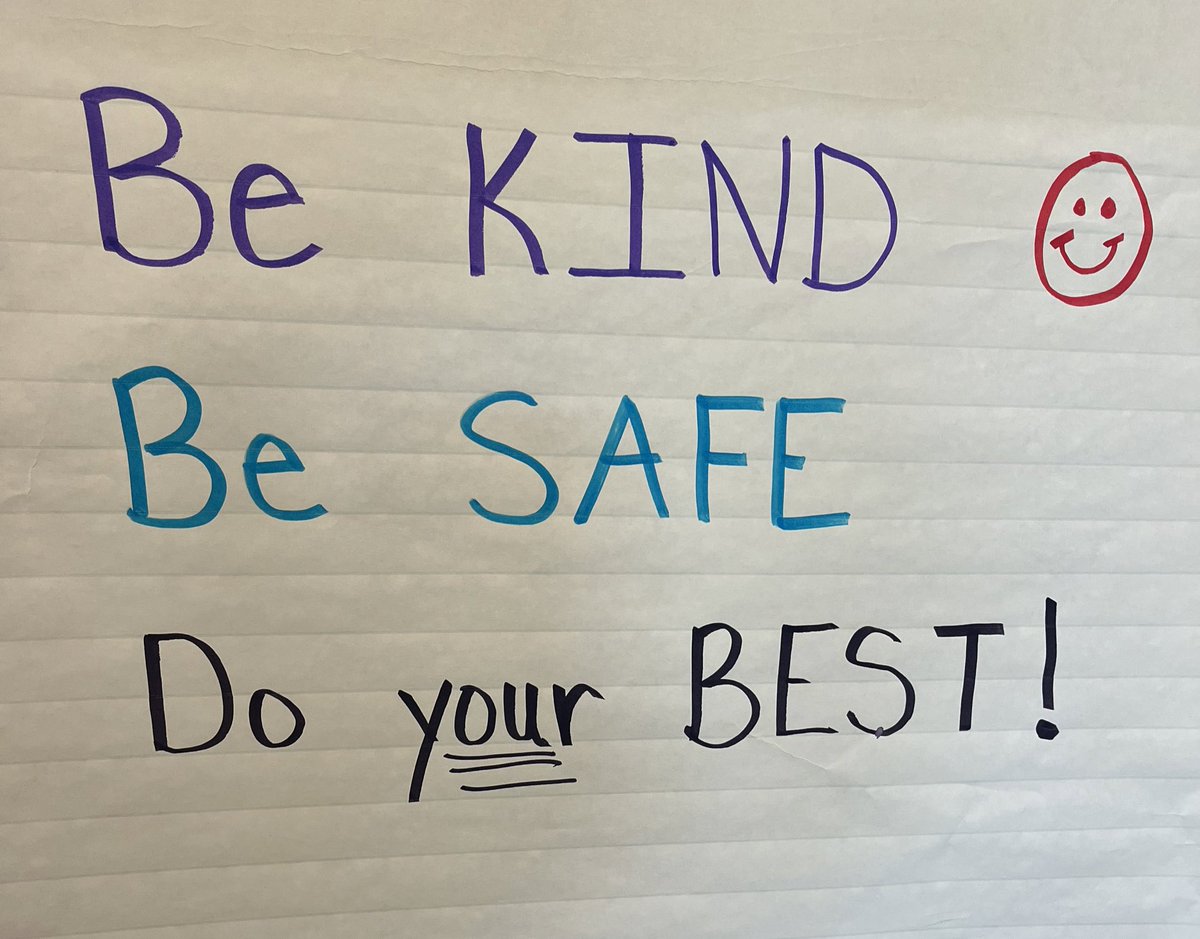 Be KIND
Be SAFE
Do your BEST!